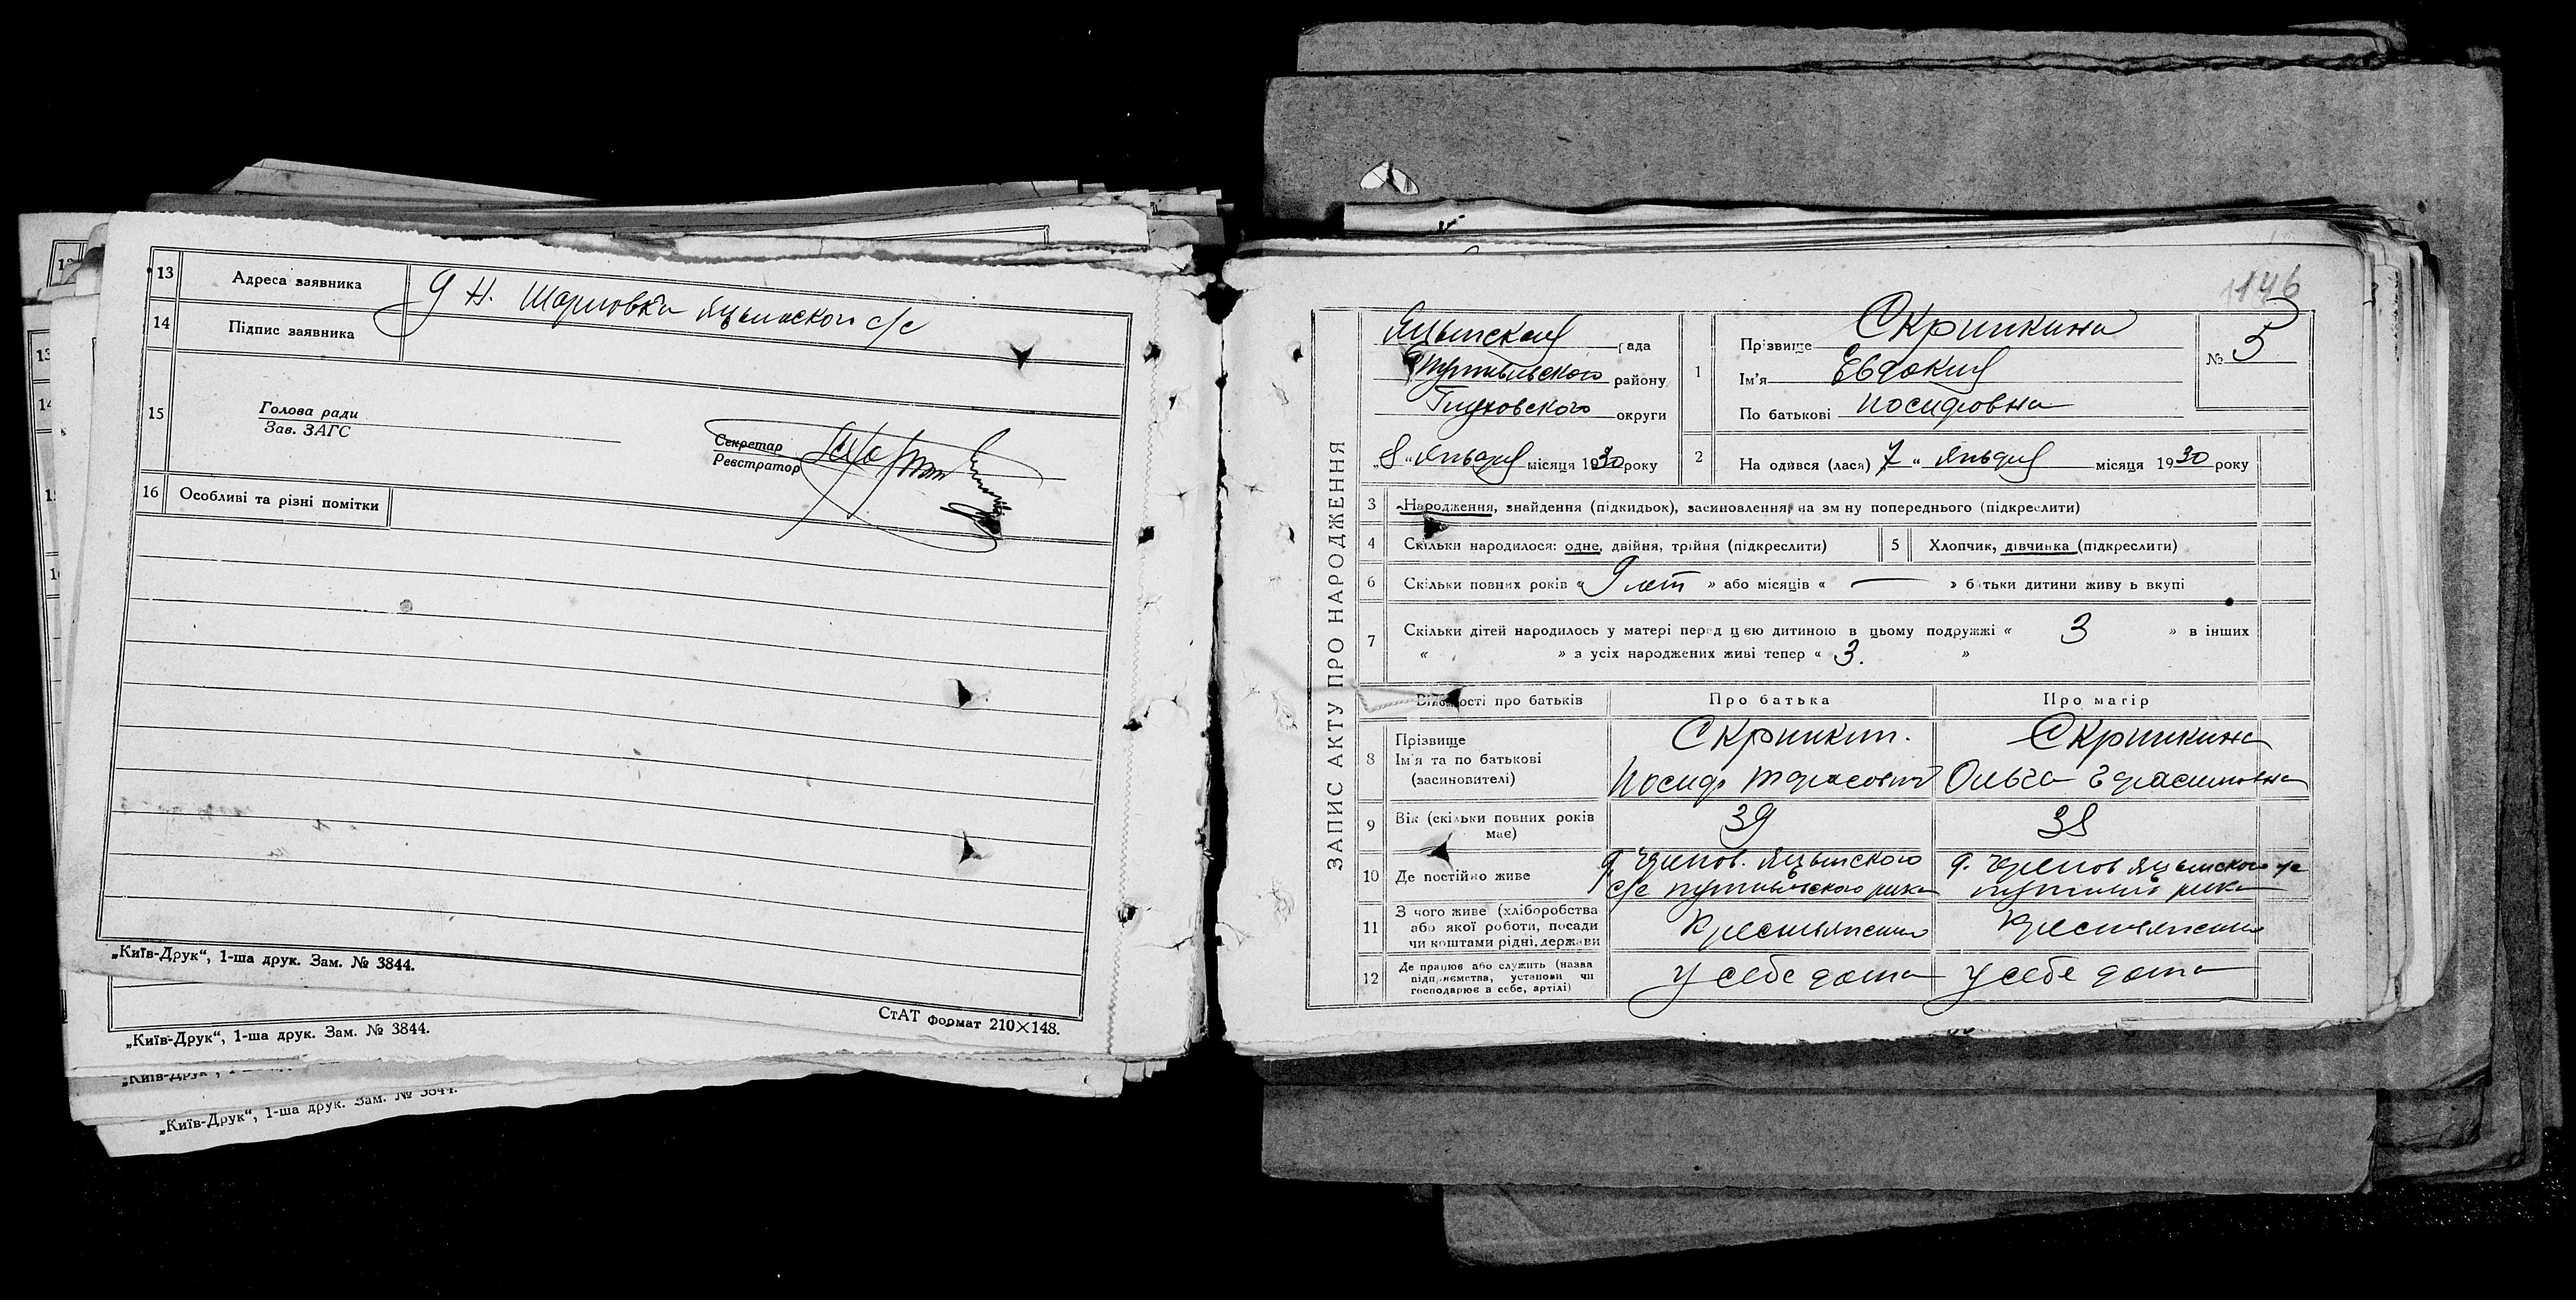 13 Адреса заявника д Н. Шарповка Яцынского с/с
14 Підпис заявника
15
Голова ради
Зав. ЗАГС
Секретар
Реєстратор
16 Особливі та різні помітки
„Київ-Друк“, 1-ша друк. Зам. № 3844.
СтАТ формат 210×148.
„Київ-Друк“, 1-ша друк. Зам. № 3844.
„Київ-Друк“, 1-ша друк. Зам. № 3844.
146
ЗАПИС АКТУ ПРО НАРОДЖЕННЯ
Яцынская рада
Путивльского району
Глуховского округи
„8“ Января місяця 1930 року
1 Прізвище Скрипкина
Ім'я Евдокия
По батькові Иосифовна
№ 5
2 На одився (лася) 7 “ Января місяця 1930 року
3 Народження, знайдення (підкидьок), засиновлення, на зм ну попереднього (підкреслити)
4 Скільки народилося: одне, двійня, трійня (підкреслити)
5 Хлопчик, дівчинка (підкреслити)
6 Скільки повних років « 9 лет » або місяців « — » батьки дитини живу ь вкупі
7 Скільки дітей народилось у матері перед цією дитиною в цьому подружжі « 3 » в інших
« » з усіх народжених живі тепер « 3. »
Відомості про батьків Про батька Про матір
8 Прізвище Скрипкин. Скрипкина
Ім'я та по батькові
(засиновителі) Иосиф Тарасович Ольга Герасимовна
9 Вік (скільки повних років має) 39 38
10 Де постійно живе
д. Черепов. Яцынского
с/с Путивльского рика
д. Черепов Яцынского с/с
рика
11 З чого живе (хліборобства
або якої роботи, посади
чи коштами рідні, держави
12 Де працює або служить (назва
підприємства, установи чи
господарює в себе, артілі)
у себе дома у себе дома